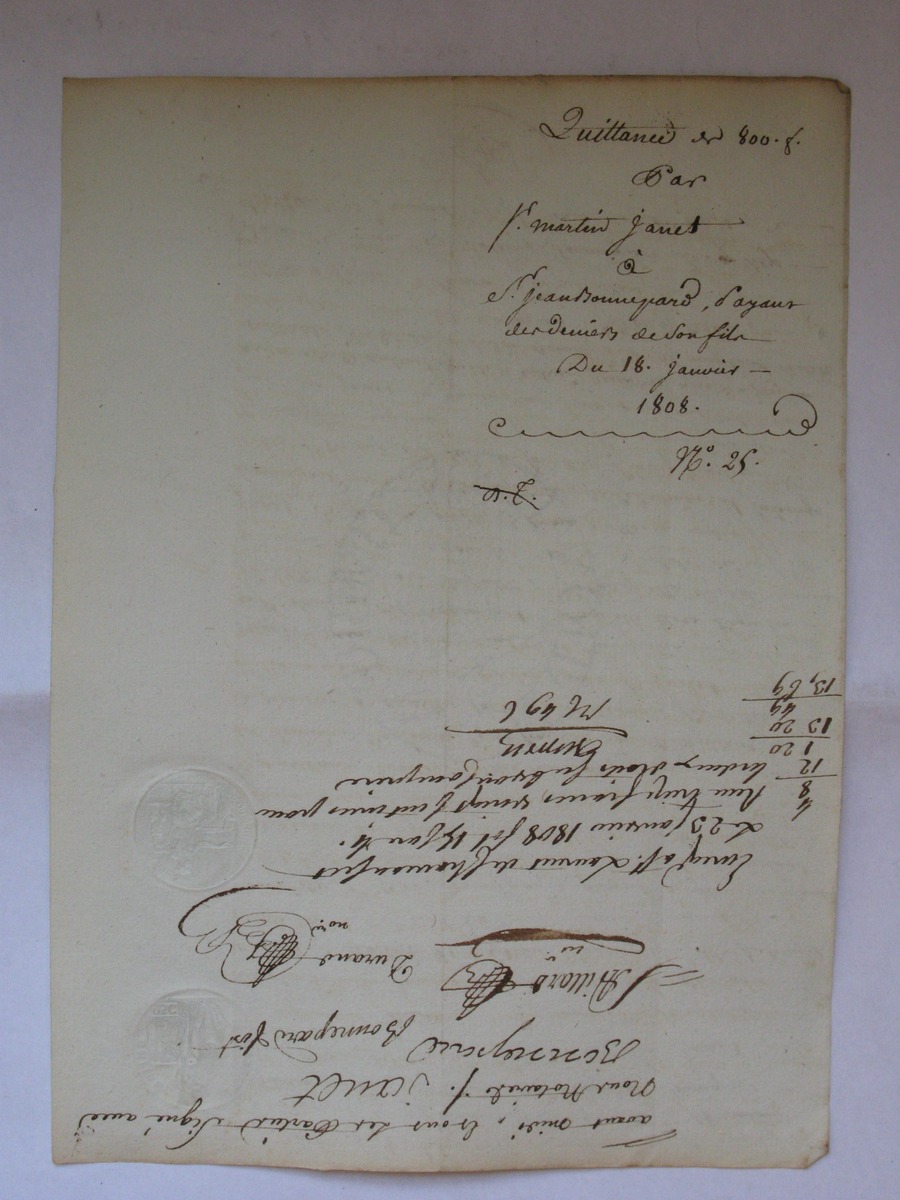 Quittance de 800. f.
Par
Sr. martin Janet
à
Sr. jean Bonnepard, Payant
des Deniers de Son fils
Du 18. janvier
1808.
N.o 25.
avant midi, et ont les Parties Signé avec
Nous Notaires. J. Janet
Bonnepard
Bonnepard fils
Billard
nre
Durand
nore
Enreg. a St. Laurent de Chamousset
le 25 janvier 1808 fol 15
Reçu treize francs vingt centimes pour
8
12
1 20
13 20
49
13,69